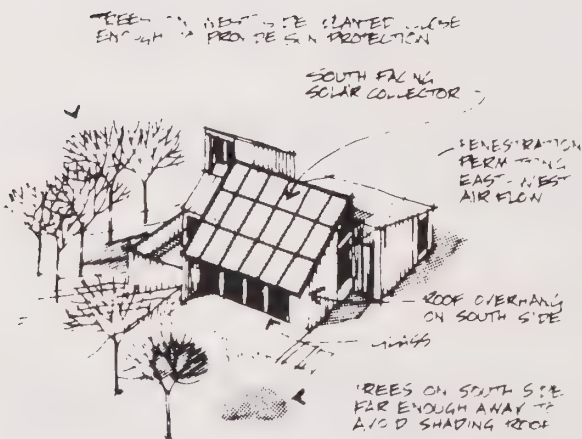 TREES ON WEST SIDE PLANTED CLOSE
ENOUGH TO PROVIDE SUN PROTECTION
SOUTH FACING
SOLAR COLLECTOR
FENESTRATION
PERMITTING
EAST-WEST
AIR FLOW
ROOF OVERHANG
ON SOUTH SIDE
TREES ON SOUTH SIDE
FAR ENOUGH AWAY TO
AVOID SHADING ROOF